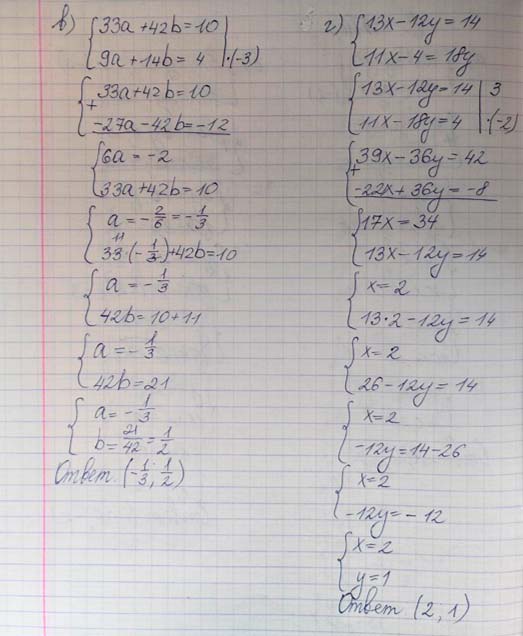 в) { 33a + 42b = 10 |
{ 9a + 14b = 4 | ·(-3)
{ 33a + 42b = 10
+
{ -27a - 42b = -12
{ 6a = -2
{ 33a + 42b = 10
{ a = -2/6 = -1/3
11
{ 33·(-1/3) + 42b = 10
{ a = -1/3
{ 42b = 10 + 11
{ a = -1/3
{ 42b = 21
{ a = -1/3
{ b = 21/42 = 1/2
Ответ. (-1/3, 1/2)
г) { 13x - 12y = 14
{ 11x - 4 = 18y
{ 13x - 12y = 14 | 3
{ 11x - 18y = 4 | ·(-2)
{ 39x - 36y = 42
+
{ -22x + 36y = -8
{ 17x = 34
{ 13x - 12y = 14
{ x = 2
{ 13·2 - 12y = 14
{ x = 2
{ 26 - 12y = 14
{ x = 2
{ -12y = 14 - 26
{ x = 2
{ -12y = -12
{ x = 2
{ y = 1
Ответ (2, 1)